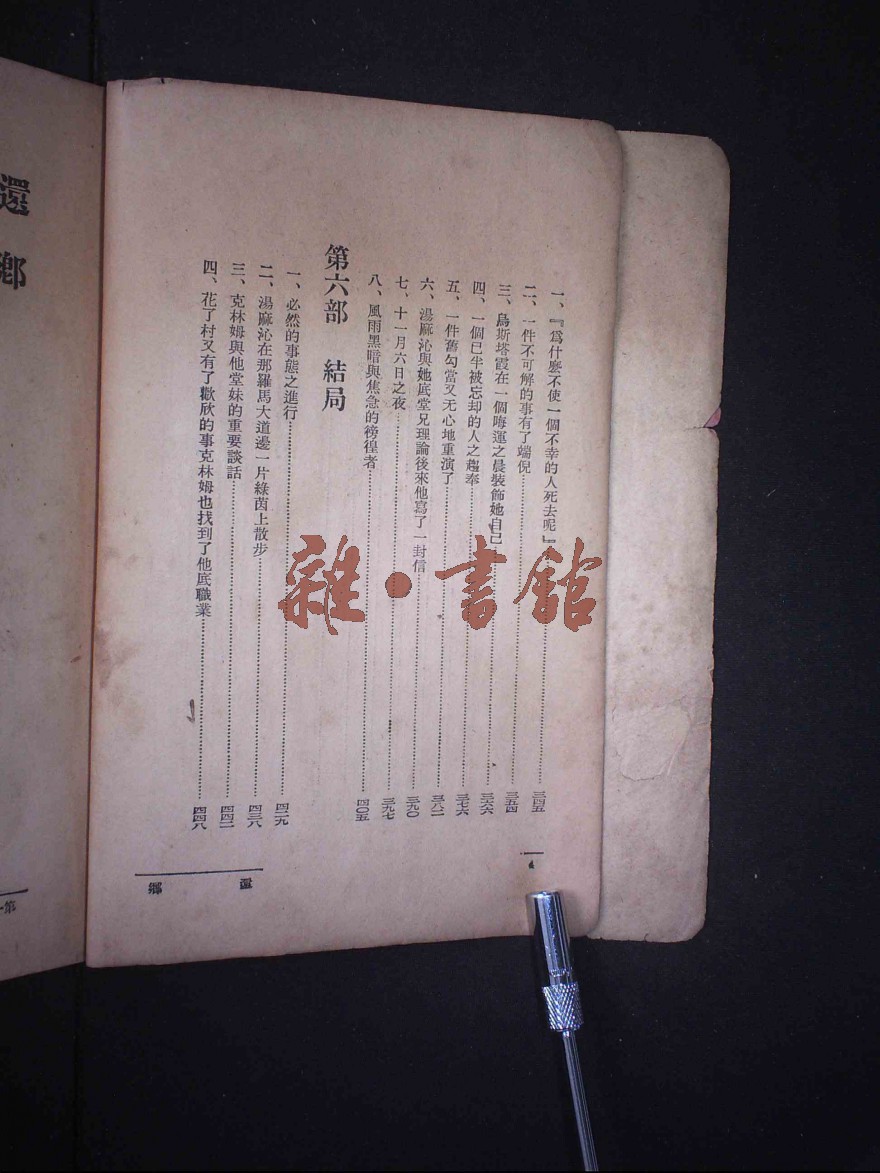 一、『爲什麼不使一個不幸的人死去呢』……三四五
二、一件不可解的事有了端倪……三五四
三、烏斯塔霞在一個晦運之晨裝飾她自己……三六六
四、一個已半被忘却的人之趨奉……三七六
五、一件舊勾當又无心地重演了……三八二
六、湯麻沁與她底堂兄理論後來他寫了一封信……三九〇
七、十一月六日之夜……三九七
八、風雨黑暗與焦急的徬徨者……四〇五
第六部 結局
一、必然的事態之進行……四二九
二、湯麻沁在那羅馬大道邊一片綠茵上散步……四三八
三、克林姆與他堂妹的重要談話……四四二
四、花了村又有了歡欣的事克林姆也找到了他底職業……四四八
還鄉
還鄉
第一
雜·書館